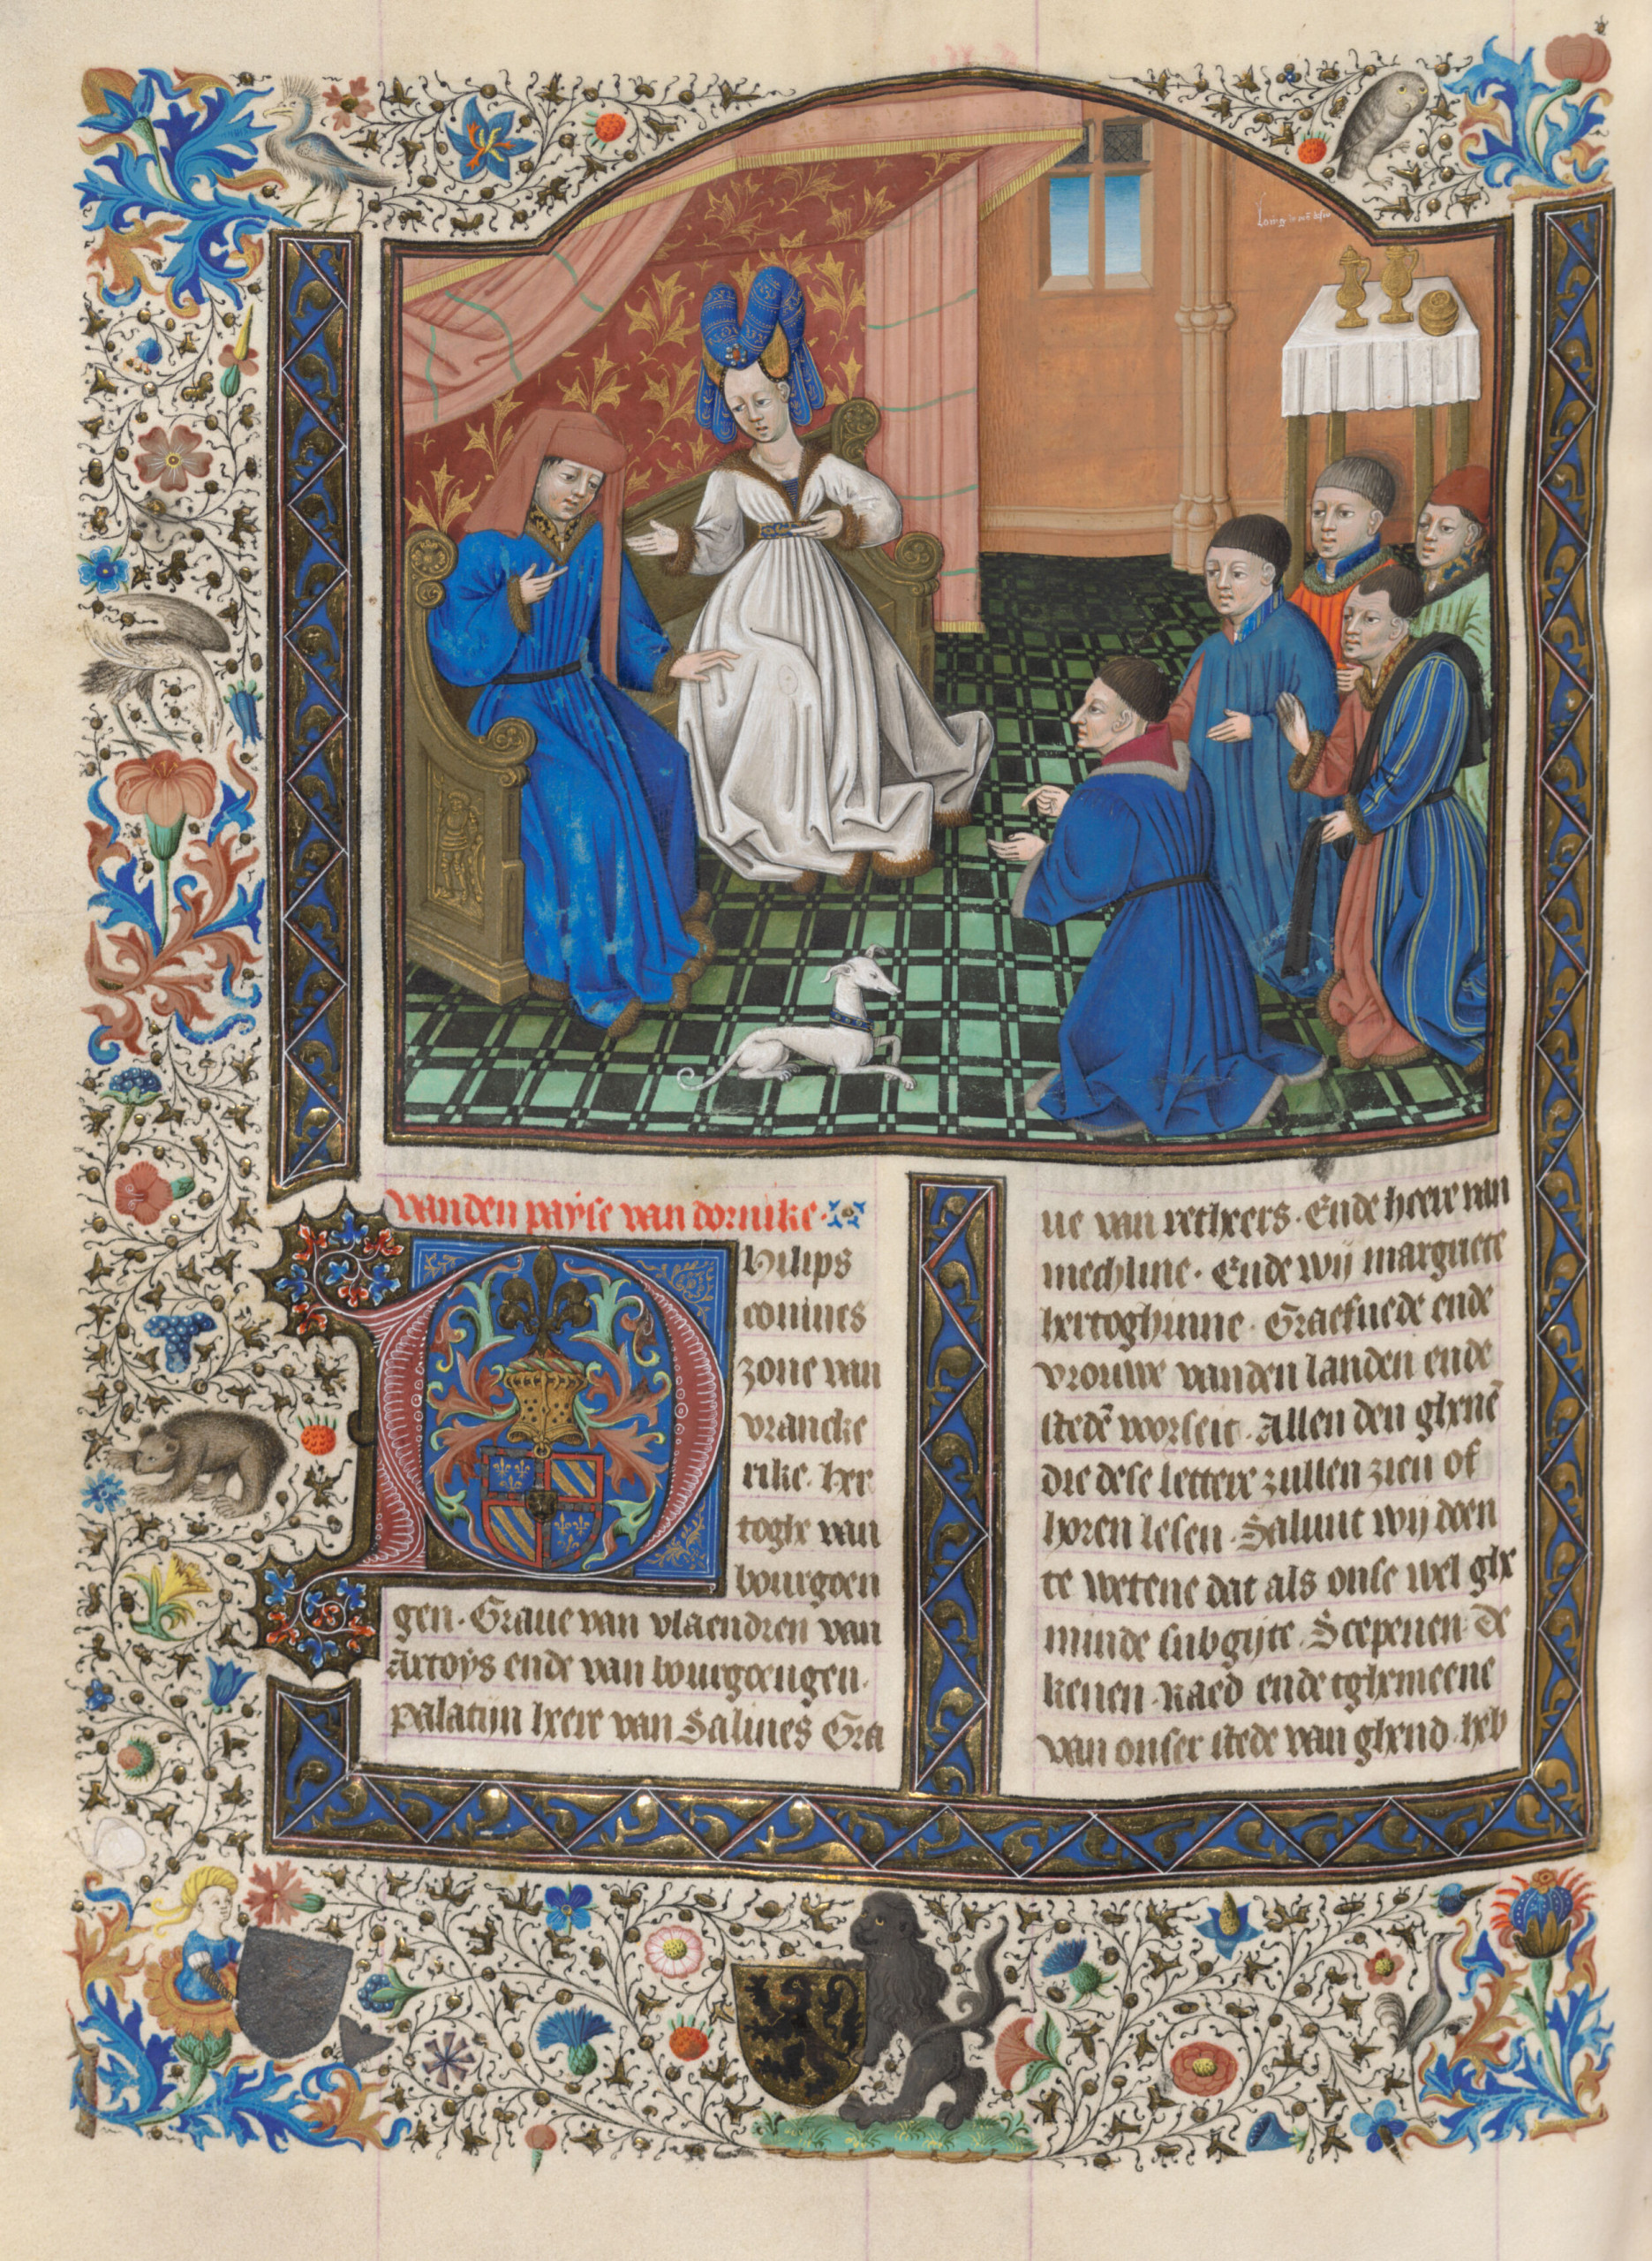 vanden payse van dornike
Philips
conincs
zone van
vrancke
rike. her
toghe van
bourgoen
gen. Graue van vlaendren van
Artoys ende van bourgoengen.
palatijn heere van Salines Gra
ue van rethers. Ende heere van
mechline. Ende wij margriete
hertoghinne. Graefnede ende
vrouwe vanden landen ende
stedē vorseit. Allen den ghenē
die dese lettere zullen zien of
horen lesen. Saluut wij doen
te wetene dat als onse wel ghe
minde subgijte. Scepenen De
kenen. Raed ende tghemeene
van onser stede van ghend. heb